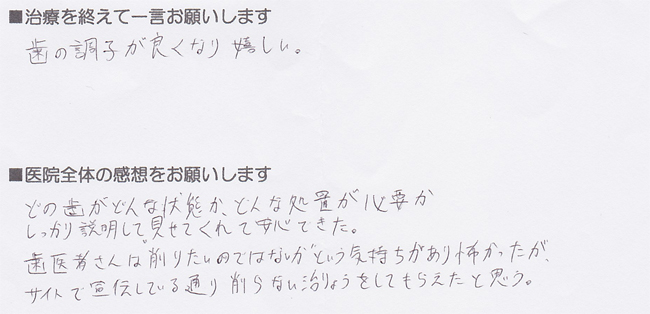 ■治療を終えて一言お願いします
歯の調子が良くなり嬉しい。
■医院全体の感想をお願いします
どの歯がどんな状態か、どんな処置が必要か
しっかり説明して見せてくれて安心できた。
歯医者さんは"削りたいのではないか"という気持ちがあり怖かったが、
サイトで宣伝している通り削らない治りょうをしてもらえたと思う。